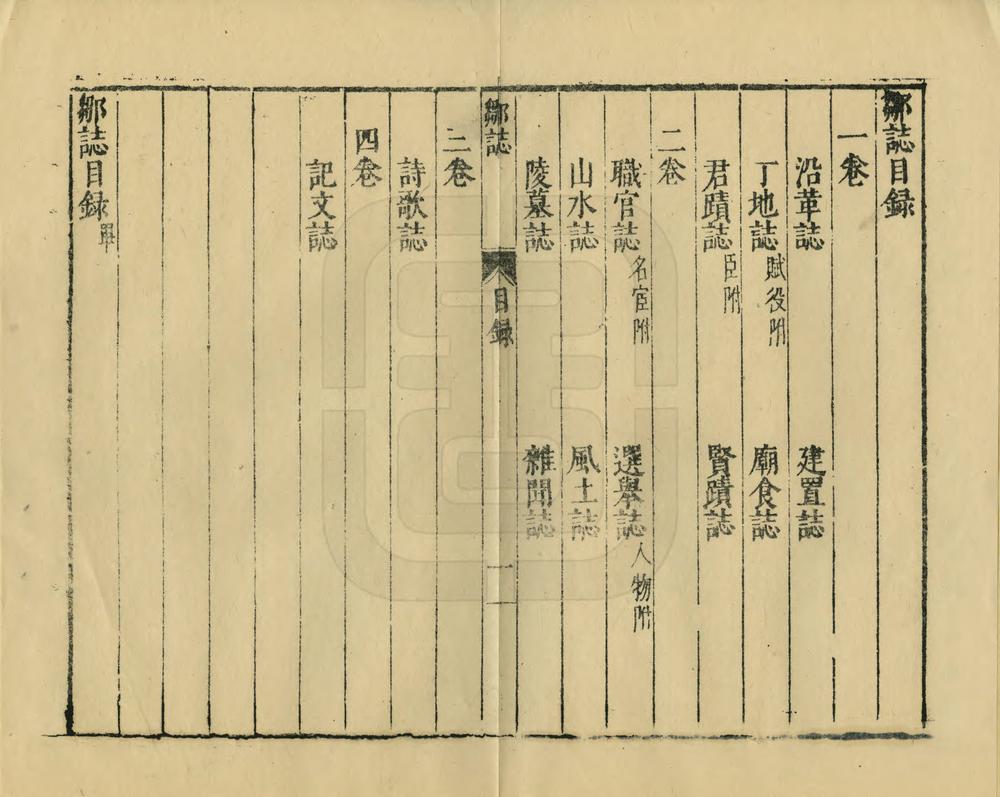 鄒誌目録
一卷
沿革誌　建置誌
丁地誌賦役附　廟食誌
君蹟誌臣附　賢蹟誌
二卷
職官誌名宦附　選舉誌人物附
山水誌　風土誌
陵墓誌　雜聞誌
鄒誌　目録　一
三卷
詩歌誌
四卷
記文誌
鄒誌目録畢